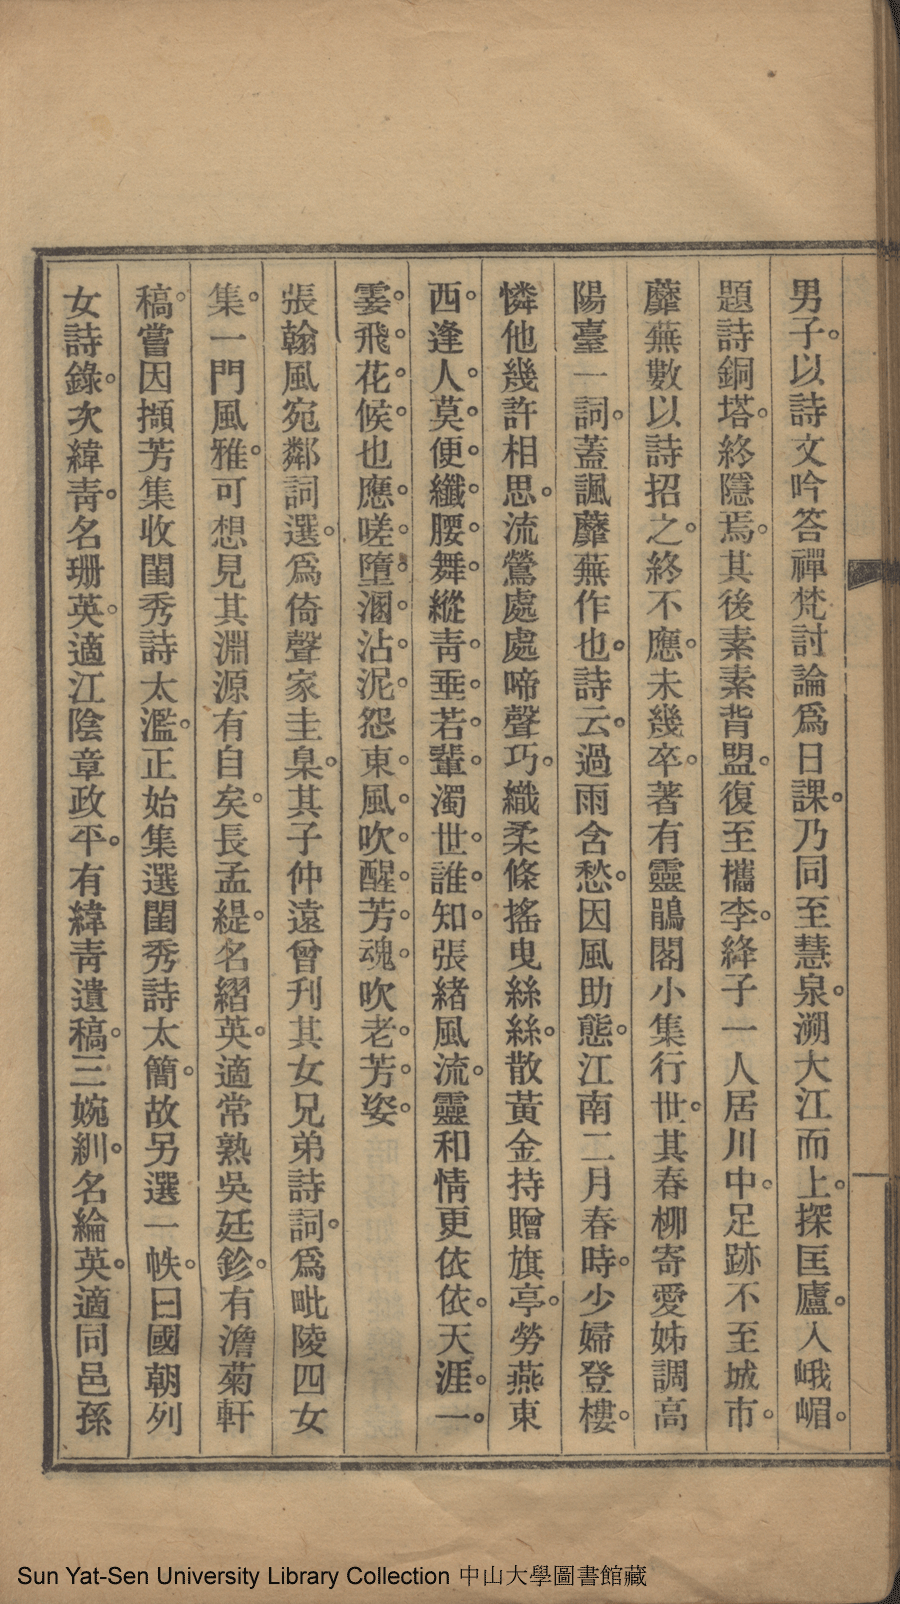 男子。以詩文吟答禪梵討論爲日課。乃同至慧泉。溯大江而上。探匡廬。入峨嵋。
題詩銅塔。終隱焉。其後素素背盟。復至檇李。絳子一人居川中。足跡不至城市。
蘼蕪數以詩招之。終不應。未幾卒。著有靈鵑閣小集行世。其春柳寄愛姊調高
陽臺一詞。蓋諷蘼蕪作也。詩云。過雨含愁。因風助態。江南二月春時。少婦登樓。
憐他幾許相思。流鶯處處啼聲巧。織柔條搖曳絲絲。散黃金持贈旗亭。勞燕東
西。逢人。莫。便。纖。腰。舞。縱。靑。垂。若。輩。濁世。誰。知。張緒風流。靈和情更依依。天涯。一。
霎。飛。花。候。也應。嗟。墮。溷。沾。泥。怨東。風。吹。醒。芳。魂。吹老。芳。姿。
張翰風宛鄰詞選。爲倚聲家圭臬。其子仲遠曾刊其女兄弟詩詞。爲毗陵四女
集。一門風雅。可想見其淵源有自矣。長孟緹。名䌖英。適常熟吳廷鉁。有澹菊軒
稿。嘗因擷芳集收閨秀詩太濫。正始集選閨秀詩太簡。故另選一帙。曰國朝列
女詩錄。次緯靑。名珊英。適江陰章政平。有緯靑遺稿。三婉紃。名綸英。適同邑孫
Sun Yat-Sen University Library Collection 中山大學圖書館藏